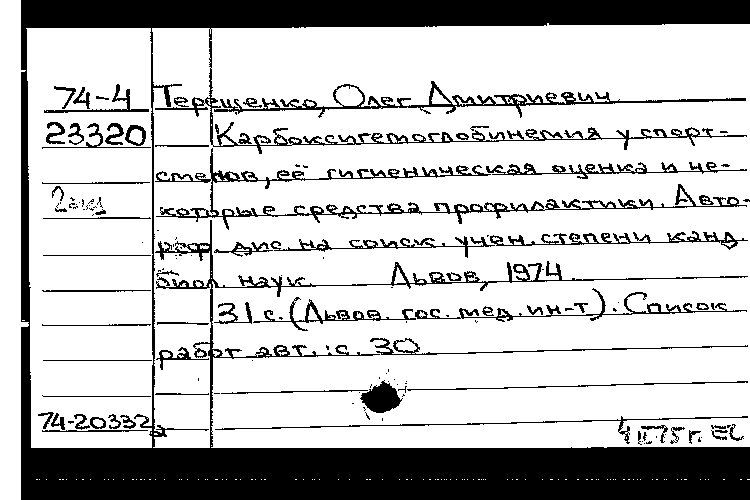 74-4 Терещенко, Олег Дмитриевич
23320 Карбоксигемоглобинемия у спорт-
сменов, её гигиеническая оценка и не-
2 экз которые средства профилактики. Авто-
реф. дис. на соиск. учен. степени канд.
биол. наук. Львов, 1974.
31 с. (Львов. гос. мед. ин-т). Список
работ авт.: с. 30
74-20332
4 II 75 г.